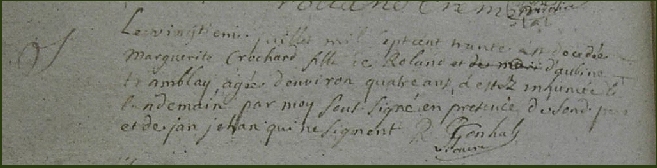 Le vingtieme juillet mil sept cent trante est decedée
Marguerite Crochard fille de Roland et de marie d'aubine
tramblay, agée d'environ quatre ans, a estez inhumée le
landemain par moy sousigné en presence de son d. pere
et de jan jehan qui ne signent